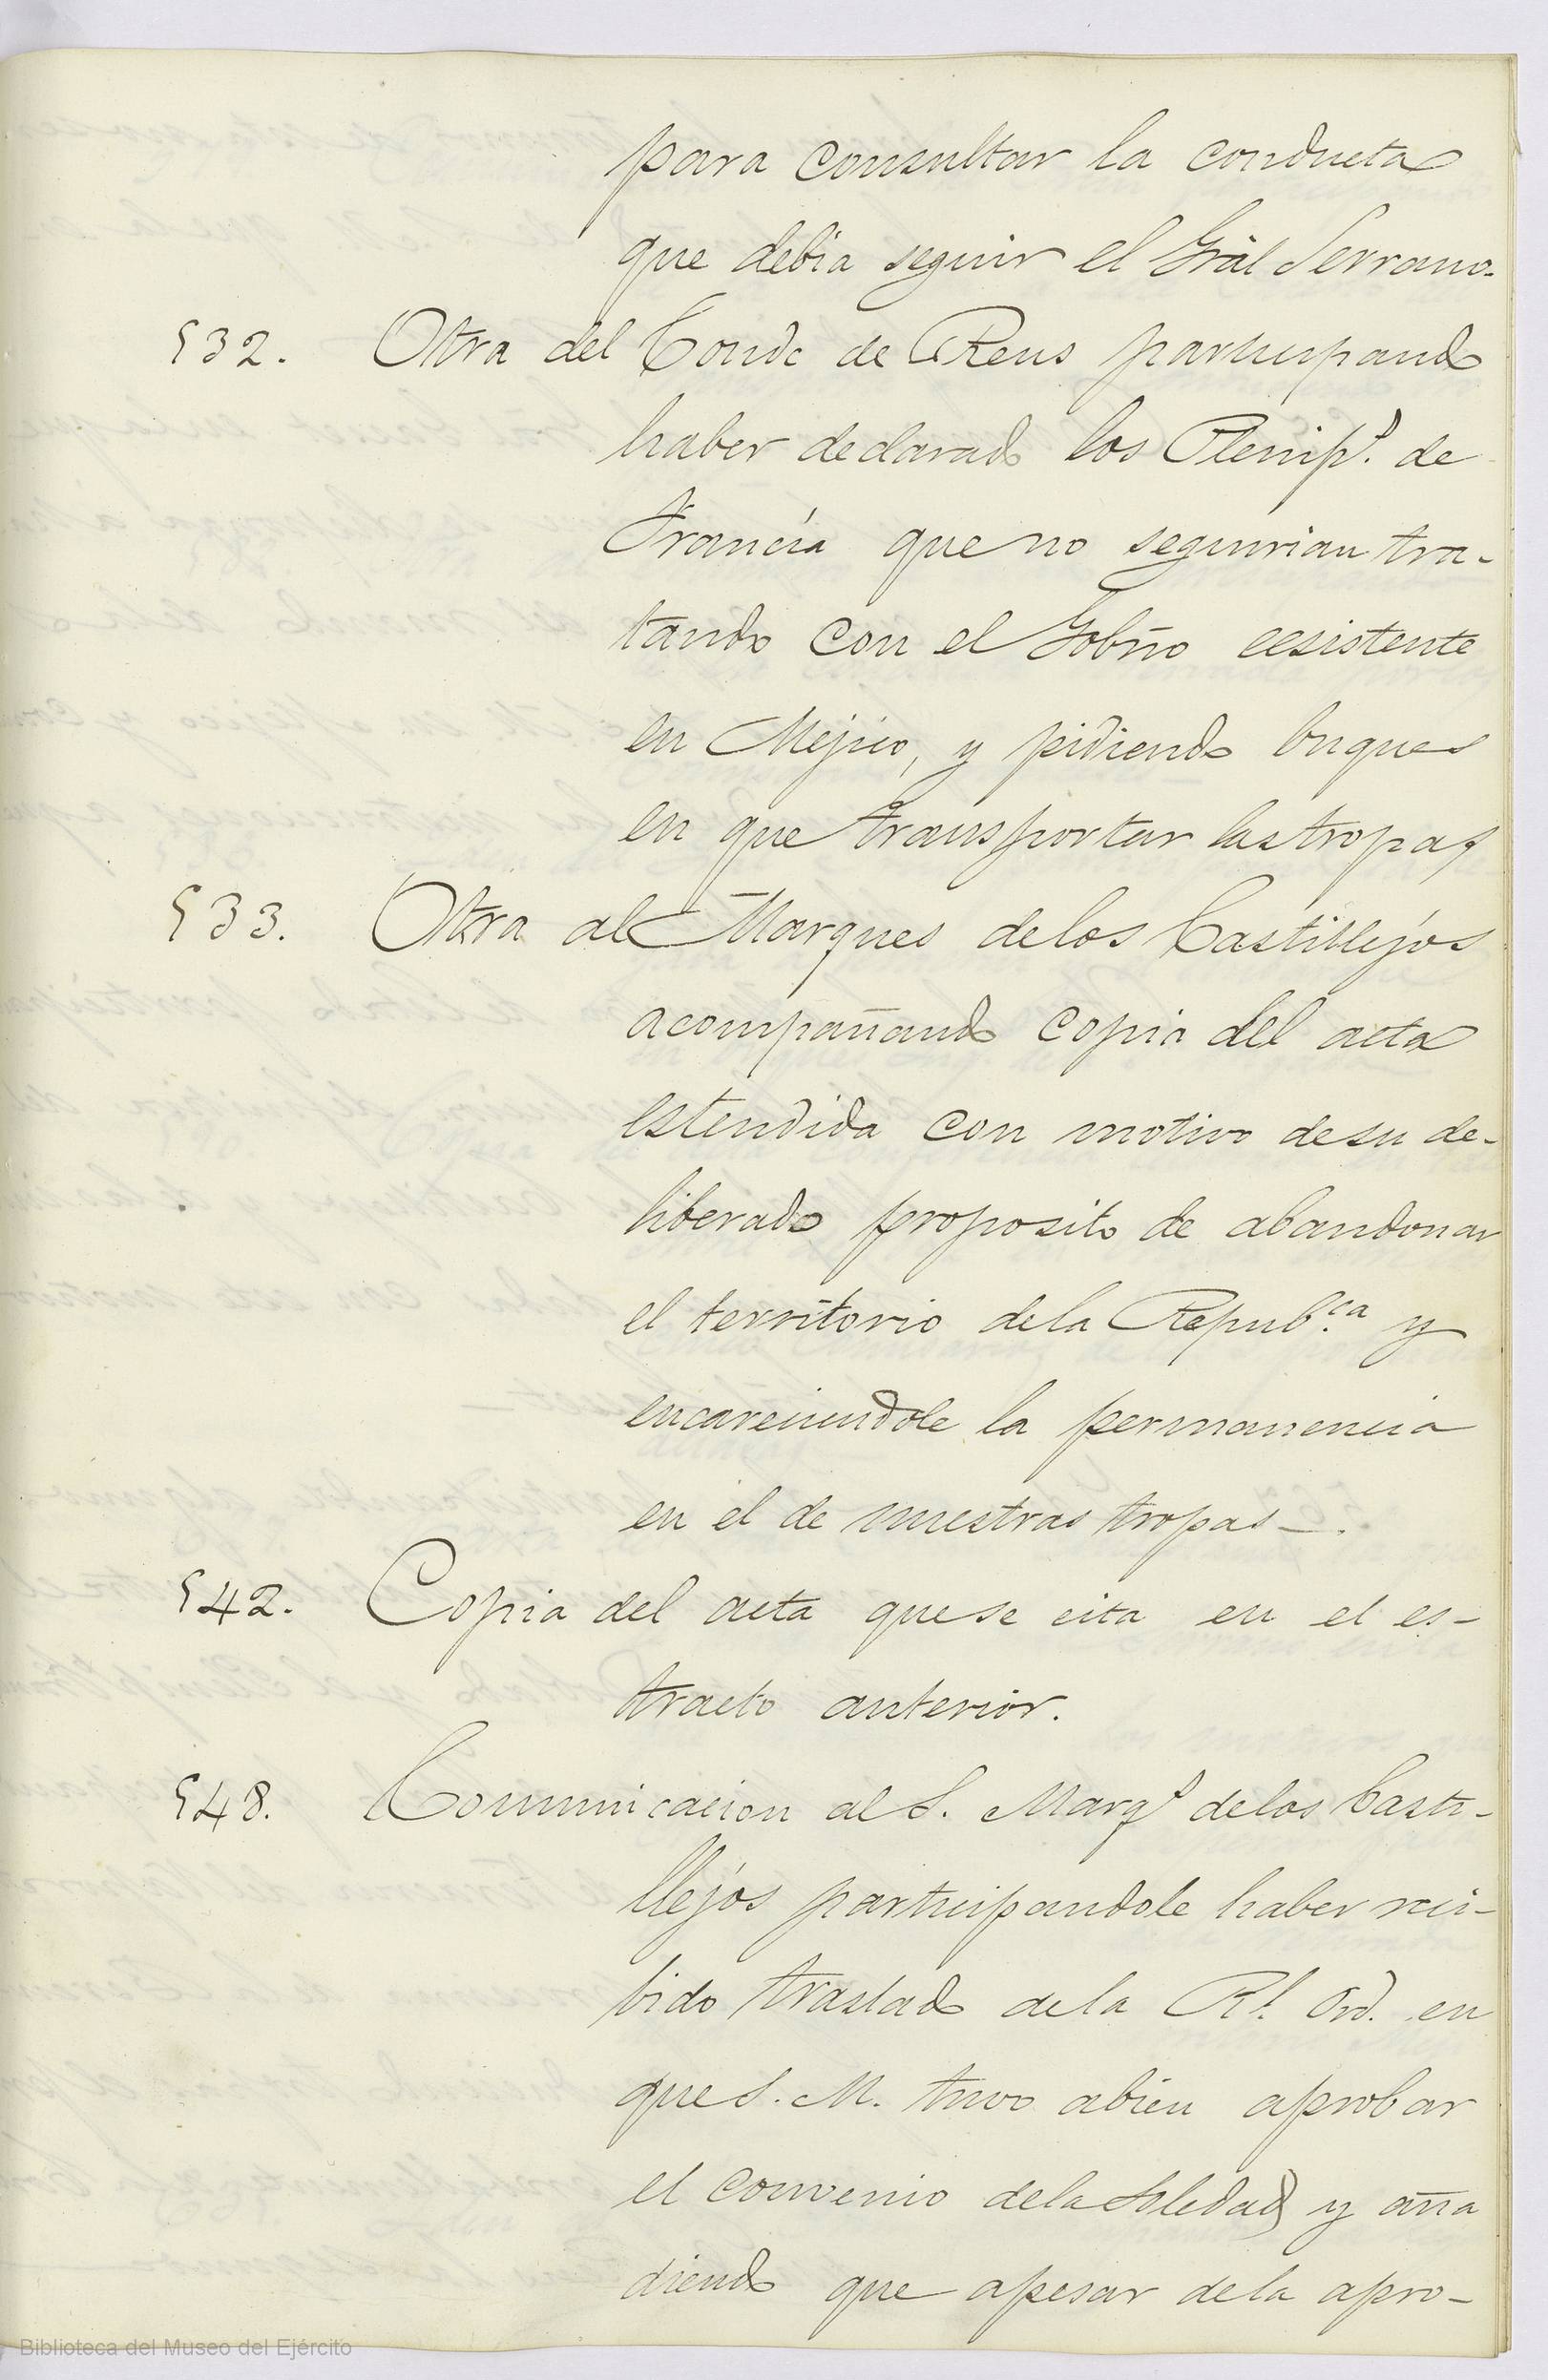 para consultar la conducta
que debia seguir el Gral Serrano.
532. Otra del Conde de Reus participando
haber declarado los Plenip.s de
Francia que no seguirian tra-
tando con el Gobño ecsistente
en Mejico, y pidiendo buques
en que transportar las tropas
533. Otra al Marques de los Castillejos
acompañando copia del acta
estendida con motivo de su de-
liberado proposito de abandonar
el territorio de la Repub.ca y
encareciendole la permanencia
en el de nuestras tropas-.
542. Copia del acta que se cita en el es-
tracto anterior.
548. Comunicacion al S. Marqs de los Casti-
llejos participandole haber reci-
bido traslado de la Rl. Ord. en
que S. M. tuvo abien aprobar
el convenio de la Soledad y aña
diendo que apesar de la apro-
Biblioteca del Museo del Ejército